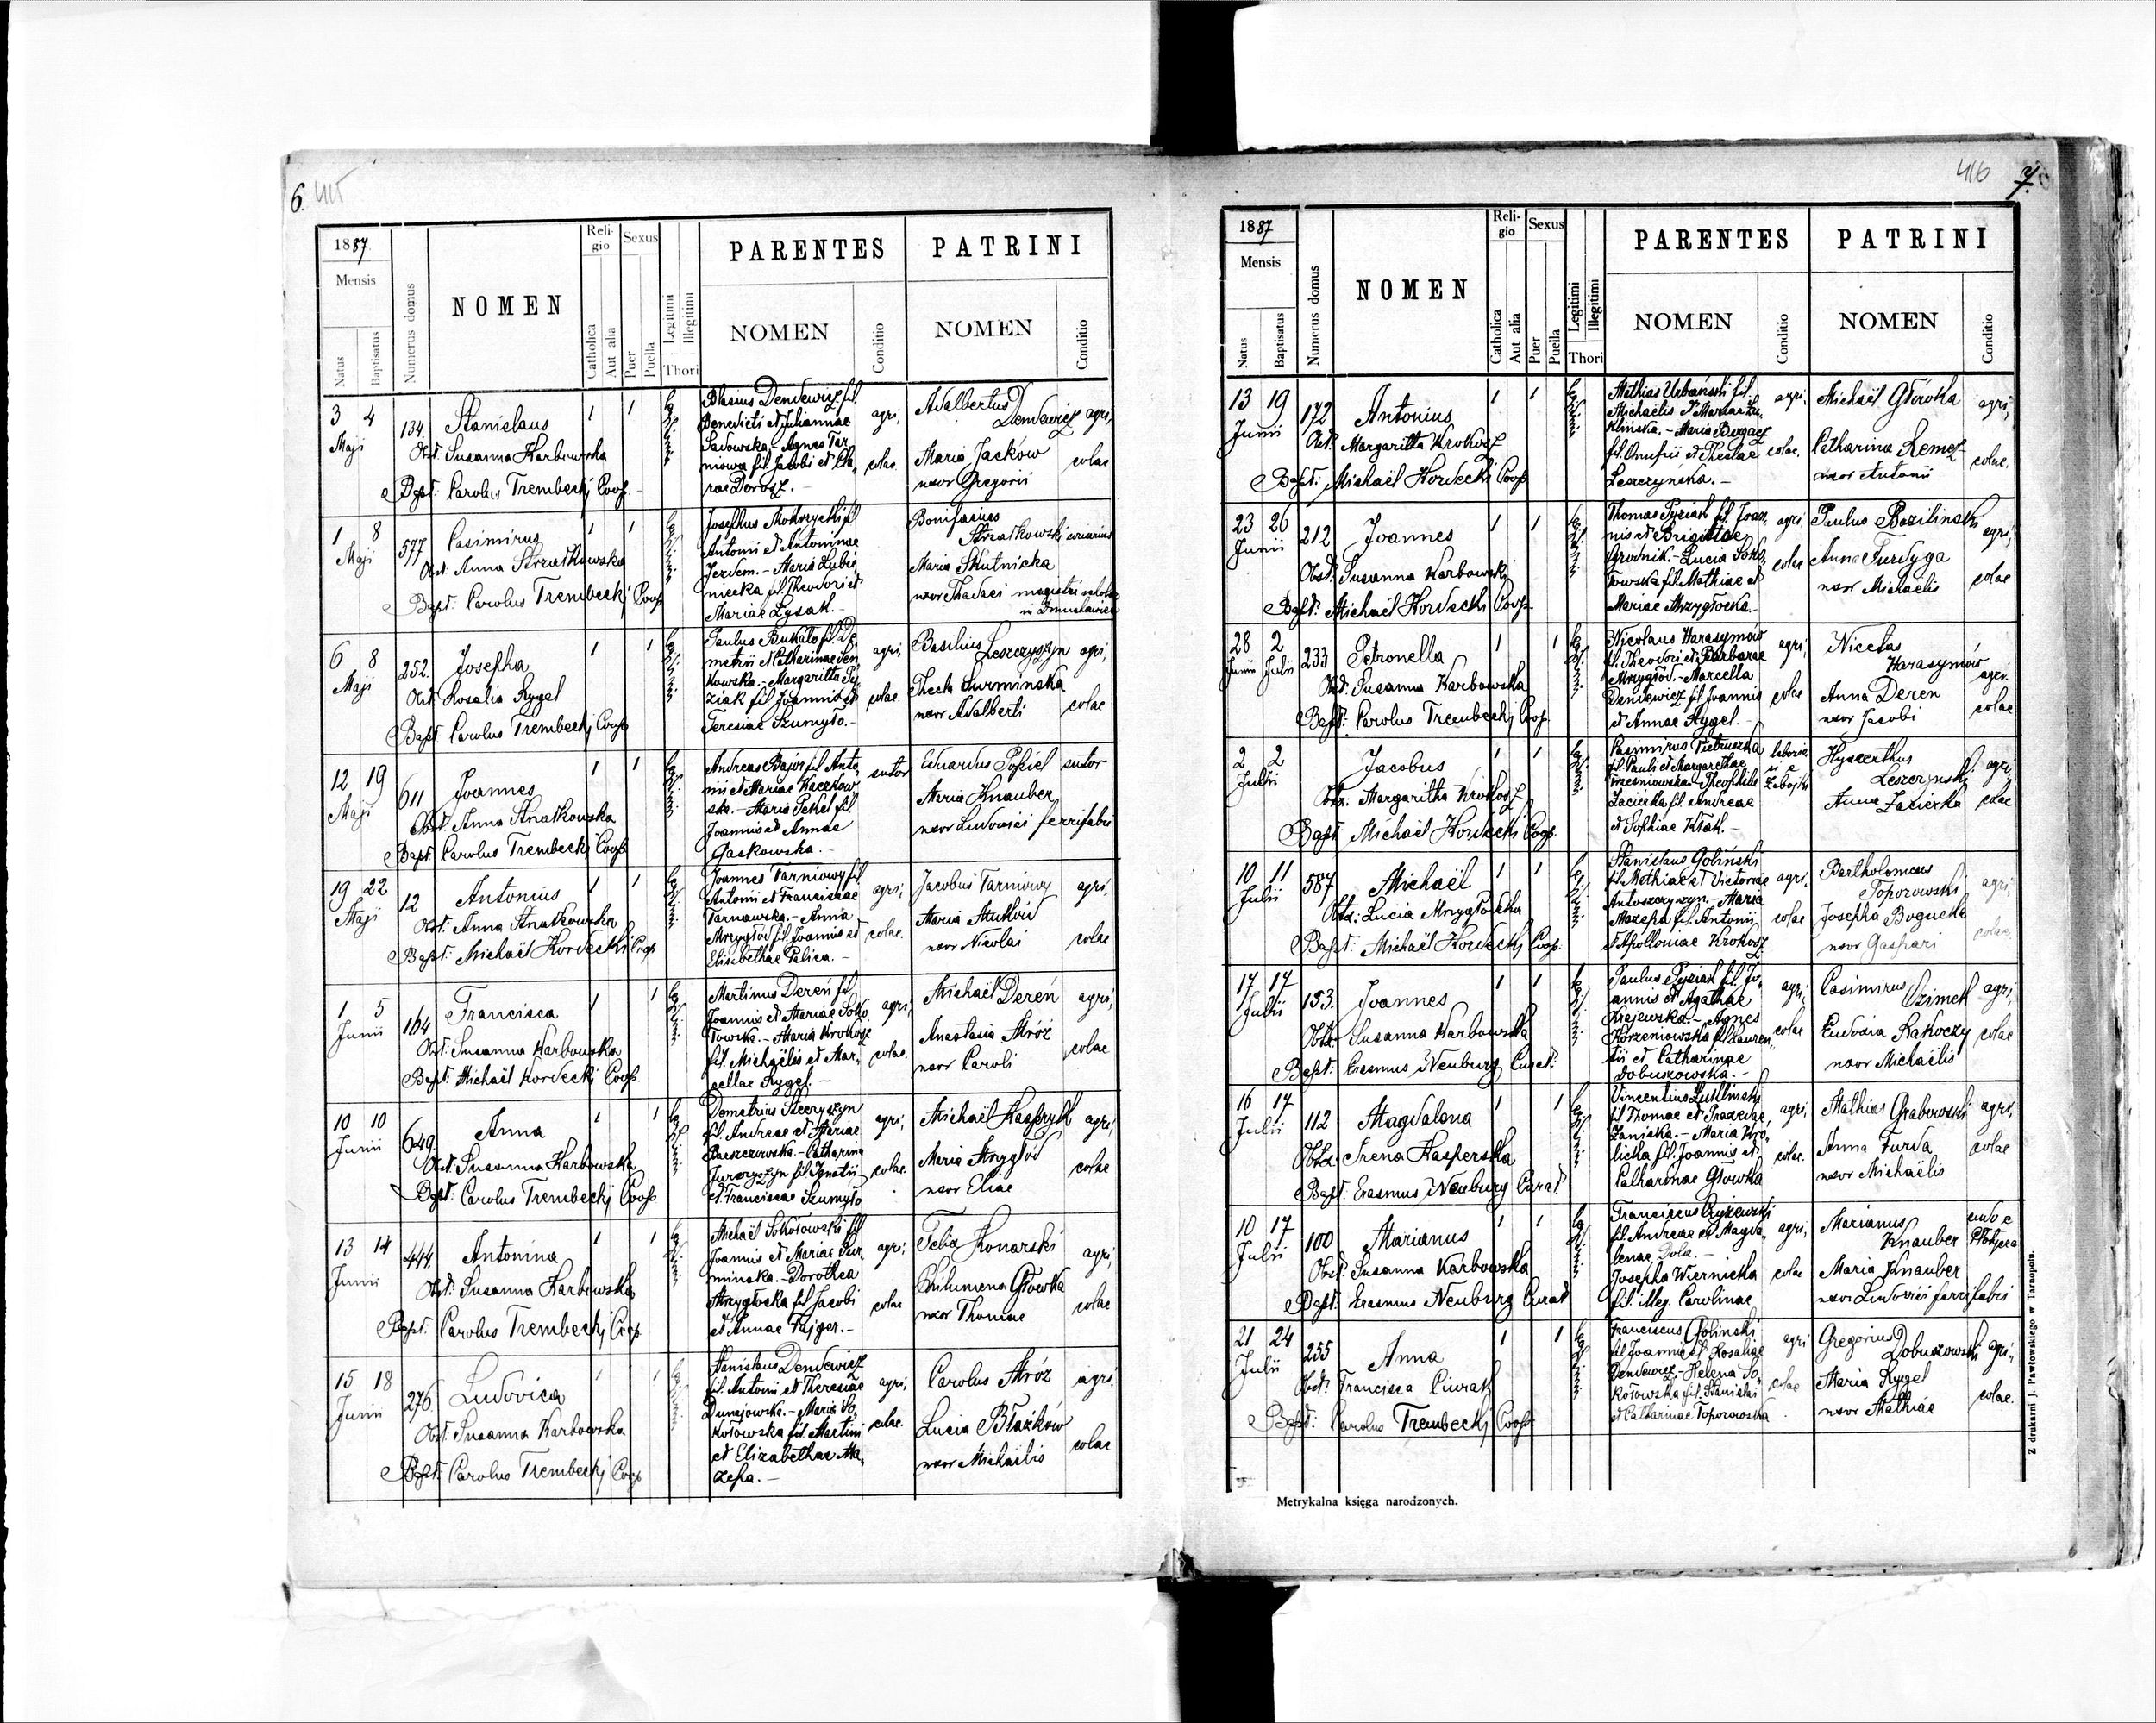 6. 415
1887.
Mensis
Natus
Baptisatus
Numerus domus
NOMEN
Religio
Catholica
Aut alia
Sexus
Puer
Puella
Legitimi
Illegitimi
Thori
PARENTES
NOMEN
Conditio
PATRINI
NOMEN
Conditio
3 4 Maji
134
Stanislaus
Obst. Susanna Karbowska
Bapt: Carolus Trembecki Coop.
1 1
Blasius Dendewicz fil.
Benedicti et Juliannae
Sadowska. - Agnes Tar
niowa fil. Jacobi et Cla,
rae Dorosz. -
agri, colae
Adalbertus
Dendewicz agri,
Maria Jacków
uxor Gregorii
colae
1 8
Maji
577
Casimirus
Obst. Anna Strzałkowska
Bapt: Carolus Trembecki Coop
1 1
Josephus Mokrzycki fil
Antonii et Antoninae
Maria Lubie
niecka fil. Theodori et
Mariae Łysak. -
Bonifacius
Strzałkowski
Maria Skutnicka
uxor Thadaei magistri
6 8
Maji
252.
Josepha
Obst. Rosalia Rygel
Bapt. Carolus Trembecki Coop
1 1
Paulus Bukało fil. De
metrii et Catharinae Sen
kowska. - Margaritta Py
ziak fil. Joannis et
Teresiae Szumyło. -
agri, colae.
Basilius Leszczyszyn agri,
Thecla Surmińska
uxor Adalberti
colae
12 19
Maji
611
Joannes
Obst. Anna Strzałkowska
Bapt. Carolus Trembecki Coop
1 1
Andreas Bajor fil. Anto
nii et Mariae Kaczkow
ska. - Maria Pekel fil.
Joannis et Annae
Gaskowska. -
sutor
Eduardus Popiel sutor
Maria Knauber
uxor Ludovici ferrifabri
19 22
Maji
12
Antonius
Obst. Anna Strzałkowska
Bapt. Michaël Kordecki Coop
1 1
Joannes Tarniowy fil
Antonii et Franciscae
Tarnawska. - Anna
Mrzygłod fil. Joannis et
Elisabethae Palica. -
agri, colae.
Jacobus Tarniowy
agri,
Maria
uxor Nicolai
colae
1 5
Junii
164
Francisca
Obst. Susanna Karbowska
Bapt. Michaël Kordecki Coop.
1 1
Martinus Dereń fil.
Joannis et Mariae Soko
łowska. - Maria Krokosz
fil. Michaëlis et Mar,
cellae Rygel. -
agri, colae.
Michaël Dereń
agri,
Anastasia Mróz
uxor Caroli
colae
10 10
Junii
649
Anna
Obst. Susanna Karbowska
Bapt: Carolus Trembecki Coop
1 1
Demetrius Steczyszyn
fil. Andreae et Mariae
Barszczowska. - Catharina
Jurczyszyn fil. Ignatii
et Franciscae Szumyło
agri, colae.
Michaël Kasprzyk agri,
Maria Mrzygłod
uxor Eliae
colae
13 14
Junii
444.
Antonina
Obst. Susanna Karbowska
Bapt. Carolus Trembecki Coop.
1 1
Michaël Sokołowski fil
Joannis et Mariae Sur
mińska. - Dorothea
Mrzygłocka fil. Jacobi
et Annae Fajger. -
agri, colae
Felix Konarski
agri,
Philumena Główka
uxor Thomae
colae
15 18
Junii
276.
Ludovica
Obst. Susanna Karbowska.
Bapt. Carolus Trembecki Coop
1 1
Stanislaus Dendewicz
fil. Antonii et Theresiae
Dunajowska. - Maria So,
kołowska fil. Martini
et Elizabethae Ma,
zepa. -
agri, colae.
Carolus Mróz
agri.
Lucia Błażków
uxor Michaëlis
colae
416 7.
1887
Mensis
Natus
Baptisatus
Numerus domus
NOMEN
Religio
Catholica
Aut alia
Sexus
Puer
Puella
Legitimi
Illegitimi
Thori
PARENTES
NOMEN
Conditio
PATRINI
NOMEN
Conditio
13 19
Junii
172
Antonius
Obst. Margaritta Krokosz
Bapt: Michaël Kordecki Coop
1 1
Mathias Urbański fil.
Michaëlis et Mariae Łu
klińska. - Maria Bugacz
fil. Onufrii et Theclae
Leszczyńska. -
agri, colae.
Michaël Główka
agri,
Catharina Remez
uxor Antonii
colae.
23 26
Junii
212
Joannes
Obst. Susanna Karbowska
Bapt: Michaël Kordecki Coop.
1 1
Thomas Pyziak fil. Joan
nis et Brigittae
Ogrodnik. - Lucia Soko,
łowska fil. Mathiae et
Mariae Mrzygłocka. -
agri, colae
Paulus Bazilinski
agri,
Anna Furdyga
uxor Michaëlis
colae
28 2
Junii Julii
233
Petronella
Obst. Susanna Karbowska
Bapt: Carolus Trembecki Coop.
1 1
Nicolaus Harasymów
fil. Theodori et Barbarae
Mrzygłod. - Marcella
Dendewicz fil. Joannis
et Annae Rygel. -
agri, colae
Nicetas
Harasymów
agri.
Anna Deren
uxor Jacobi
colae
2 2
Julii
Jacobus
Obst. Margaritha Krokosz
Bapt. Michaël Kordecki Coop.
1 1
Casimirus Pietruszka
fil. Pauli et Margarethae
Trześniowska. - Theophila
Zacierka fil. Andreae
et Sophiae Kłak. -
Hyacenthus
Leszczynski agri
Anna Zacierka colae
10 11
Julii
587
Michaël
Obst. Lucia Mrzygłocka
Bapt: Michaël Kordecki Coop.
1 1
Stanislaus Goliński
fil. Mathiae et Victoriae
Antoszczyszyn. - Maria
Mazepa fil. Antonii
et Apolloniae Krokosz
agri, colae
Bartholomaeus
Toporowski
agri,
Josepha Bogucka
uxor Gaspari
colae,
17 17
Julii
153.
Joannes
Obst. Susanna Karbowska
Bapt. Erasmus Neuburg Curat.
1 1
Paulus Pyziak fil. Jo,
annis et Agathae
Krajewska. - Agnes
Korzeniowska fil. Lauren,
tii et Catharinae
Dobuszowska. -
agri, colae
Casimirus
Uzimek agri,
Eudoxia Rakoczy
uxor Michaëlis
colae
16 17
Julii
112
Magdalena
Obst. Irena Kasperska
Bapt. Erasmus Neuburg Curat.
1 1
Vincentius Łukliński
fil. Thomae et Praxedae,
Zaniska. - Maria Kró,
licka fil. Joannis et
Catharinae Główka
agri, colae.
Mathias Grabowski agri,
Anna Furda
uxor Michaëlis
colae
10 17
Julii
100
Marianus
Obst. Susanna Karbowska
Bapt. Erasmus Neuburg Curat
1 1
Franciscus Czyżewski
fil. Andreae et Magda
lenae Dola. -
Josepha Wiernicka
fil. illeg. Carolinae
agri, colae
Marianus
Knauber
Maria Knauber
uxor Ludovici ferrifabri
21 24
Julii
255
Anna
Obst. Francisca Ciurak
Bapt: Carolus Trembecki Coop
1 1
Franciscus Goliński
fil. Joannis et Rosaliae
Dendewicz. - Helena So,
kołowska fil. Stanislai
et Catharinae Toporowska
agri colae
Gregorius
Dobuszowski agri,
Maria Rygel
uxor Mathiae
colae.
Metrykalna księga narodzonych.
Z drukarni J. Pawłowskiego w Tarnopolu.